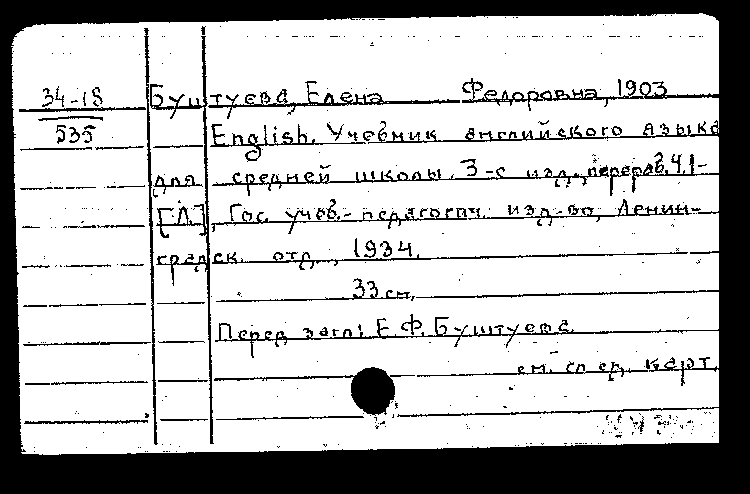 34-18
535
Буштуева, Елена Федоровна, 1903
English. Учебник английского языка
для средней школы. 3-е изд., перераб. Ч.1-
[Л.], Гос. учеб.-педагогич. изд-во, Ленин-
градск. отд., 1934.
33 см.
Перед загл: Е.Ф. Буштуева.
см. след. карт.